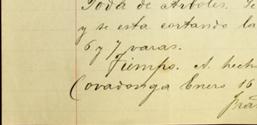 Poda de Arboles. Se
y se esta cortando la
6 y 7 varas.
Tiempo. A hecho
Covadonga Enero 16